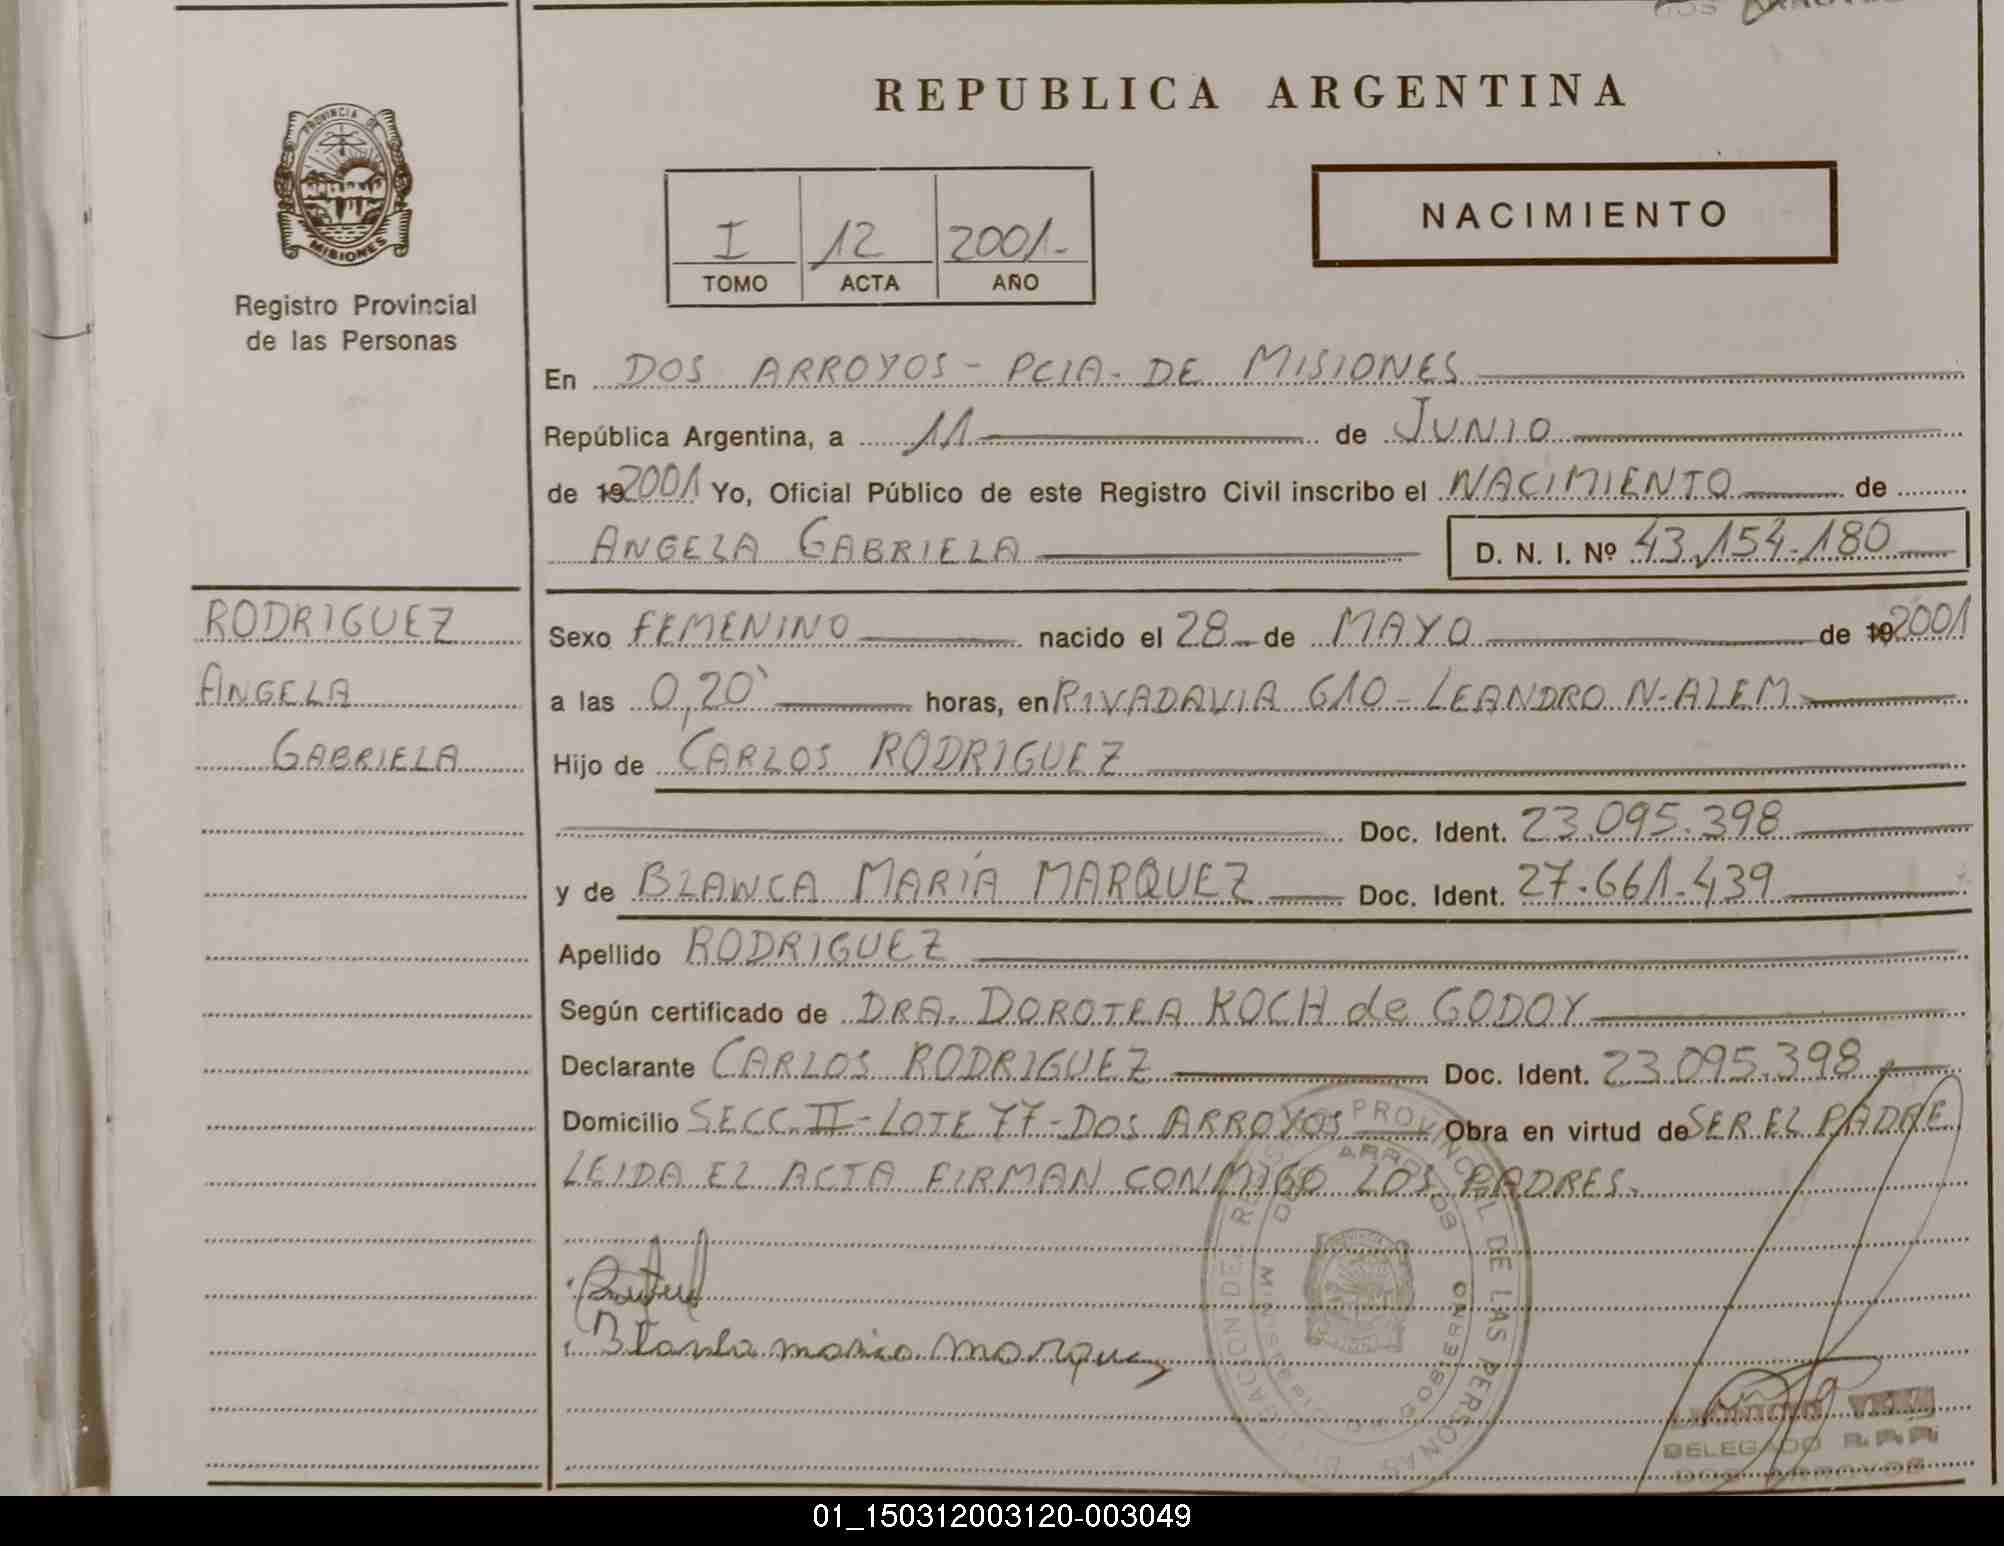 PROVINCIA DE
MISIONES
Registro Provincial
de las Personas
REPUBLICA ARGENTINA
NACIMIENTO
I 12 2001.-
TOMO ACTA AÑO
En DOS ARROYOS - PCIA. DE MISIONES
República Argentina, a 11 de JUNIO
de 192001 Yo, Oficial Público de este Registro Civil inscribo el NACIMIENTO de
ANGELA GABRIELA D. N. I. Nº 43.154.180
RODRIGUEZ
ANGELA
GABRIELA
Sexo FEMENINO nacido el 28 de MAYO de 192001
a las 0,20' horas, en RIVADAVIA 610 - LEANDRO N. ALEM
Hijo de CARLOS RODRIGUEZ
Doc. Ident. 23.095.398
y de BLANCA MARÍA MARQUEZ Doc. Ident. 27.661.439
Apellido RODRIGUEZ
Según certificado de DRA. DOROTEA KOCH de GODOY
Declarante CARLOS RODRIGUEZ Doc. Ident. 23.095.398
Domicilio SECC. II - LOTE 77 - DOS ARROYOS Obra en virtud de SER EL PADRE
LEIDA EL ACTA FIRMAN CONMIGO LOS PADRES.
Blanca maria marquez
PROVINCIAL DE LAS PERSONAS
DOS ARROYOS
MISIONES
GOBIERNO
DELEGADO R.P.P.
DOS ARROYOS
01_150312003120-003049